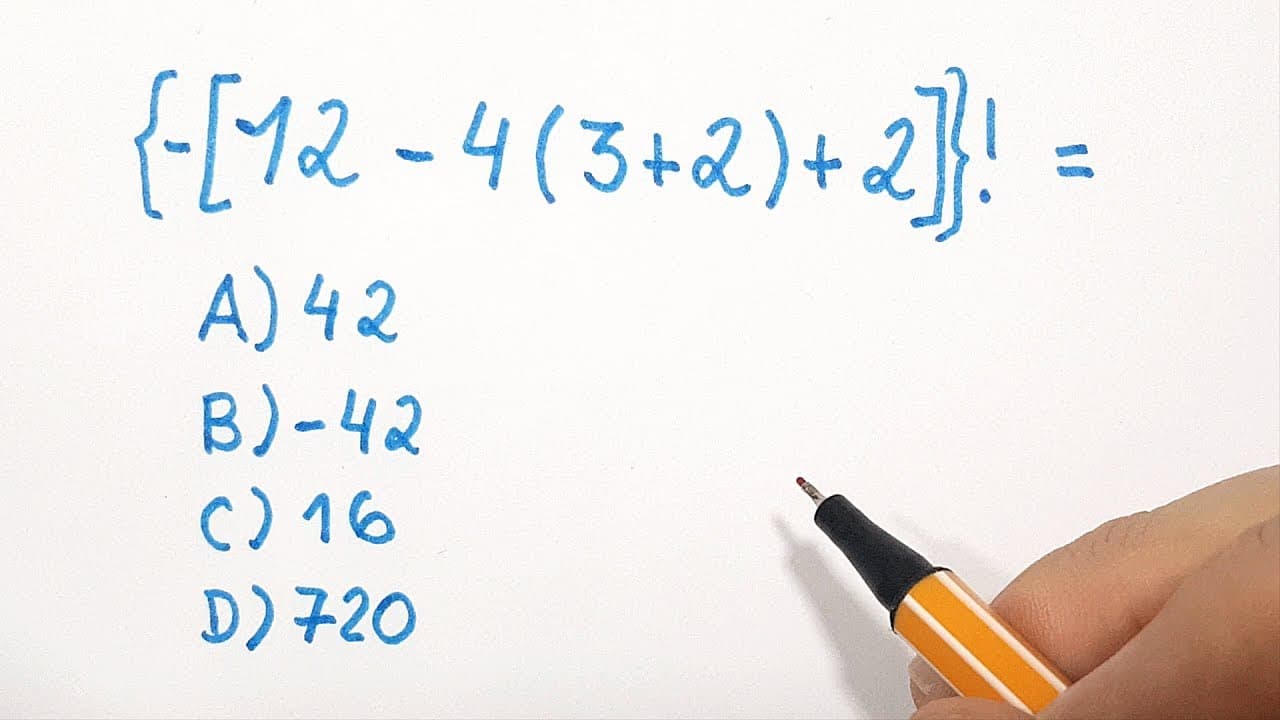 {-[12 - 4(3+2)+2]}! =
A) 42
B) -42
C) 16
D) 720